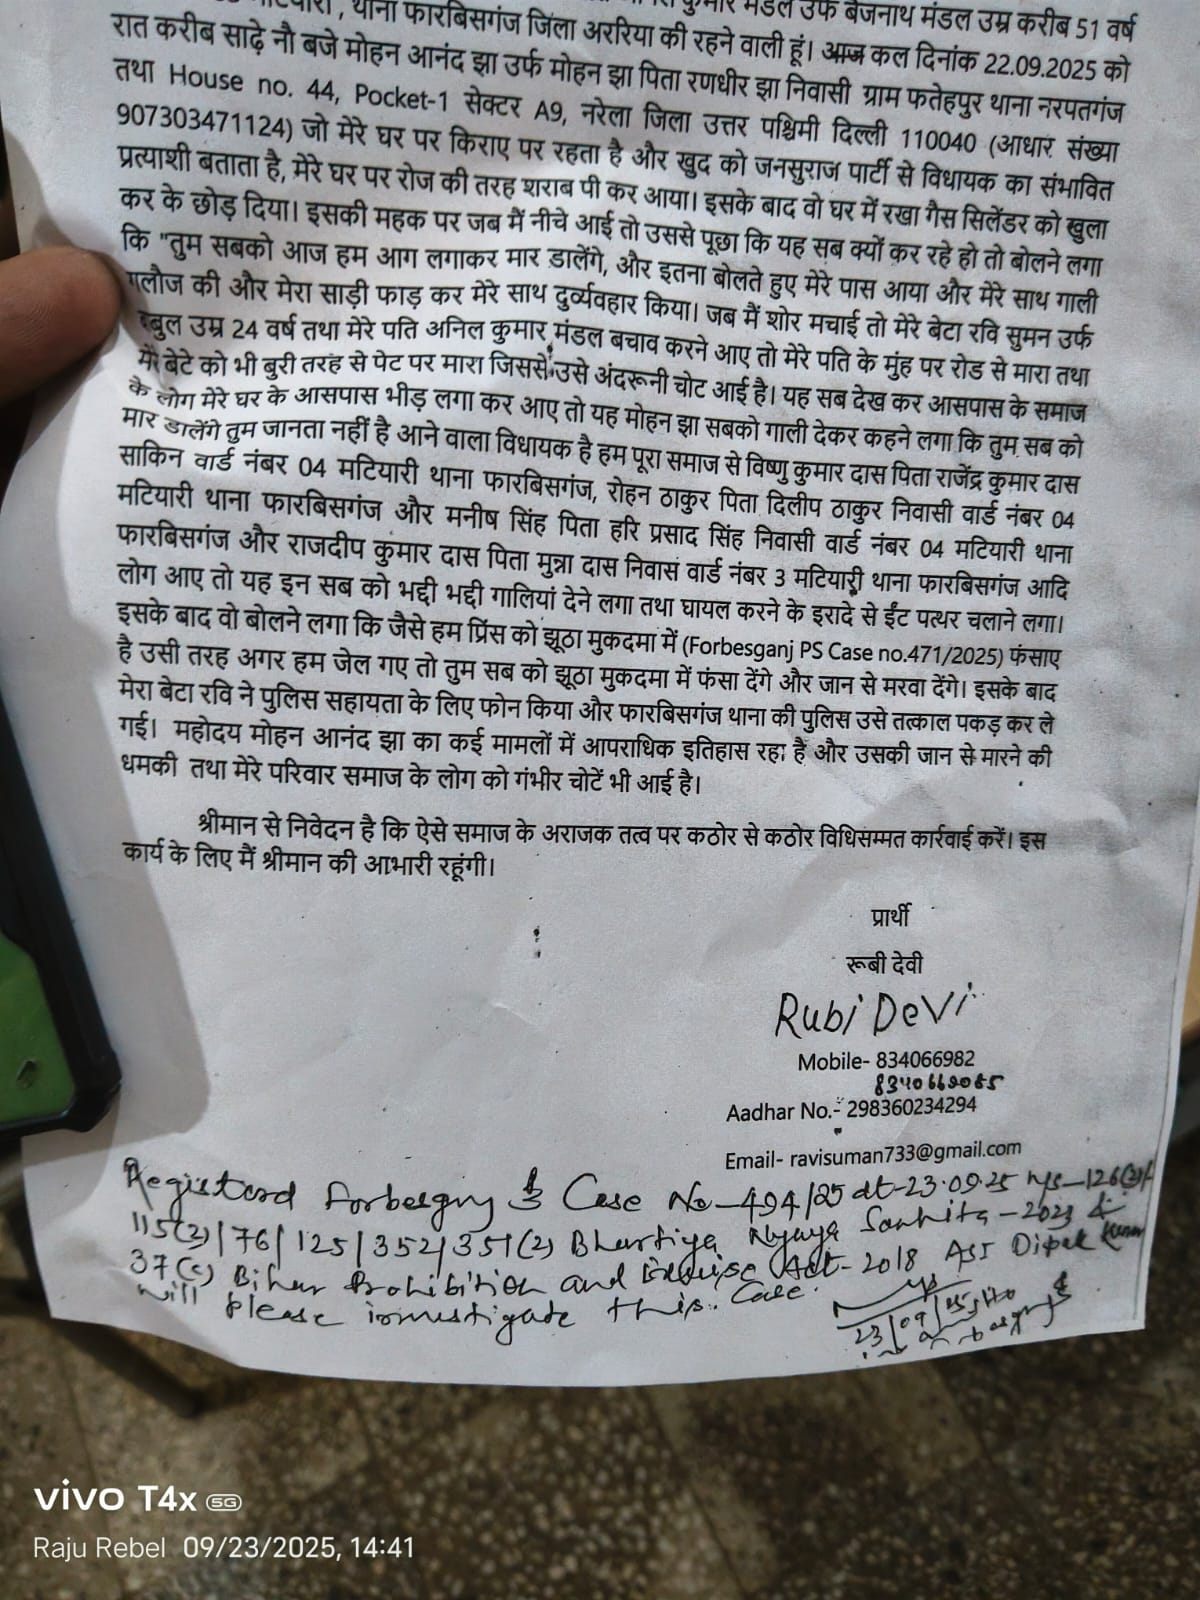 मटियारी, थाना फारबिसगंज जिला अररिया की रहने वाली हूं। आज कल दिनांक 22.09.2025 को
कुमार मंडल उर्फ बैजनाथ मंडल उम्र करीब 51 वर्ष
रात करीब साढ़े नौ बजे मोहन आनंद झा उर्फ मोहन झा पिता रणधीर झा निवासी ग्राम फतेहपुर थाना नरपतगंज
तथा House no. 44, Pocket-1 सेक्टर A9, नरेला जिला उत्तर पश्चिमी दिल्ली 110040 (आधार संख्या
907303471124) जो मेरे घर पर किराए पर रहता है और खुद को जनसुराज पार्टी से विधायक का संभावित
प्रत्याशी बताता है, मेरे घर पर रोज की तरह शराब पी कर आया। इसके बाद वो घर में रखा गैस सिलेंडर को खुला
कर के छोड़ दिया। इसकी महक पर जब मैं नीचे आई तो उससे पूछा कि यह सब क्यों कर रहे हो तो बोलने लगा
कि "तुम सबको आज हम आग लगाकर मार डालेंगे, और इतना बोलते हुए मेरे पास आया और मेरे साथ गाली
गलौज की और मेरा साड़ी फाड़ कर मेरे साथ दुर्व्यवहार किया। जब मैं शोर मचाई तो मेरे बेटा रवि सुमन उर्फ
बुल उम्र 24 वर्ष तथा मेरे पति अनिल कुमार मंडल बचाव करने आए तो मेरे पति के मुंह पर रोड से मारा तथा
मेरे बेटे को भी बुरी तरह से पेट पर मारा जिससे उसे अंदरूनी चोट आई है। यह सब देख कर आसपास के समाज
के लोग मेरे घर के आसपास भीड़ लगा कर आए तो यह मोहन झा सबको गाली देकर कहने लगा कि तुम सब को
मार डालेंगे तुम जानता नहीं है आने वाला विधायक है हम पूरा समाज से विष्णु कुमार दास पिता राजेंद्र कुमार दास
साकिन वार्ड नंबर 04 मटियारी थाना फारबिसगंज, रोहन ठाकुर पिता दिलीप ठाकुर निवासी वार्ड नंबर 04
मटियारी थाना फारबिसगंज और मनीष सिंह पिता हरि प्रसाद सिंह निवासी वार्ड नंबर 04 मटियारी थाना
फारबिसगंज और राजदीप कुमार दास पिता मुन्ना दास निवास वार्ड नंबर 3 मटियारी थाना फारबिसगंज आदि
लोग आए तो यह इन सब को भद्दी भद्दी गालियां देने लगा तथा घायल करने के इरादे से ईंट पत्थर चलाने लगा।
इसके बाद वो बोलने लगा कि जैसे हम प्रिंस को झूठा मुकदमा में (Forbesganj PS Case no.471/2025) फंसाए
है उसी तरह अगर हम जेल गए तो तुम सब को झूठा मुकदमा में फंसा देंगे और जान से मरवा देंगे। इसके बाद
मेरा बेटा रवि ने पुलिस सहायता के लिए फोन किया और फारबिसगंज थाना की पुलिस उसे तत्काल पकड़ कर ले
गई। महोदय मोहन आनंद झा का कई मामलों में आपराधिक इतिहास रहा है और उसकी जान से मारने की
धमकी तथा मेरे परिवार समाज के लोग को गंभीर चोटें भी आई है।
श्रीमान से निवेदन है कि ऐसे समाज के अराजक तत्व पर कठोर से कठोर विधिसम्मत कार्रवाई करें। इस
कार्य के लिए मैं श्रीमान की आभारी रहूंगी।
प्रार्थी
रूबी देवी
Rubi Devi
Mobile- 834066982
Aadhar No.- 298360234294
Email- ravisuman733@gmail.com
Registerd Forbesganj PS Case No-494/25 dt-23.09.25 u/s-126(2)/
115(2)/76/125/352/351(2) Bhartiya Nyaya Sanhita-2023 &
37(c) Bihar Prohibition and Excise Act-2018 ASI Dipak Kumar
will please investigate this Case.
23/09/25
vivo T4x 5G
Raju Rebel 09/23/2025, 14:41